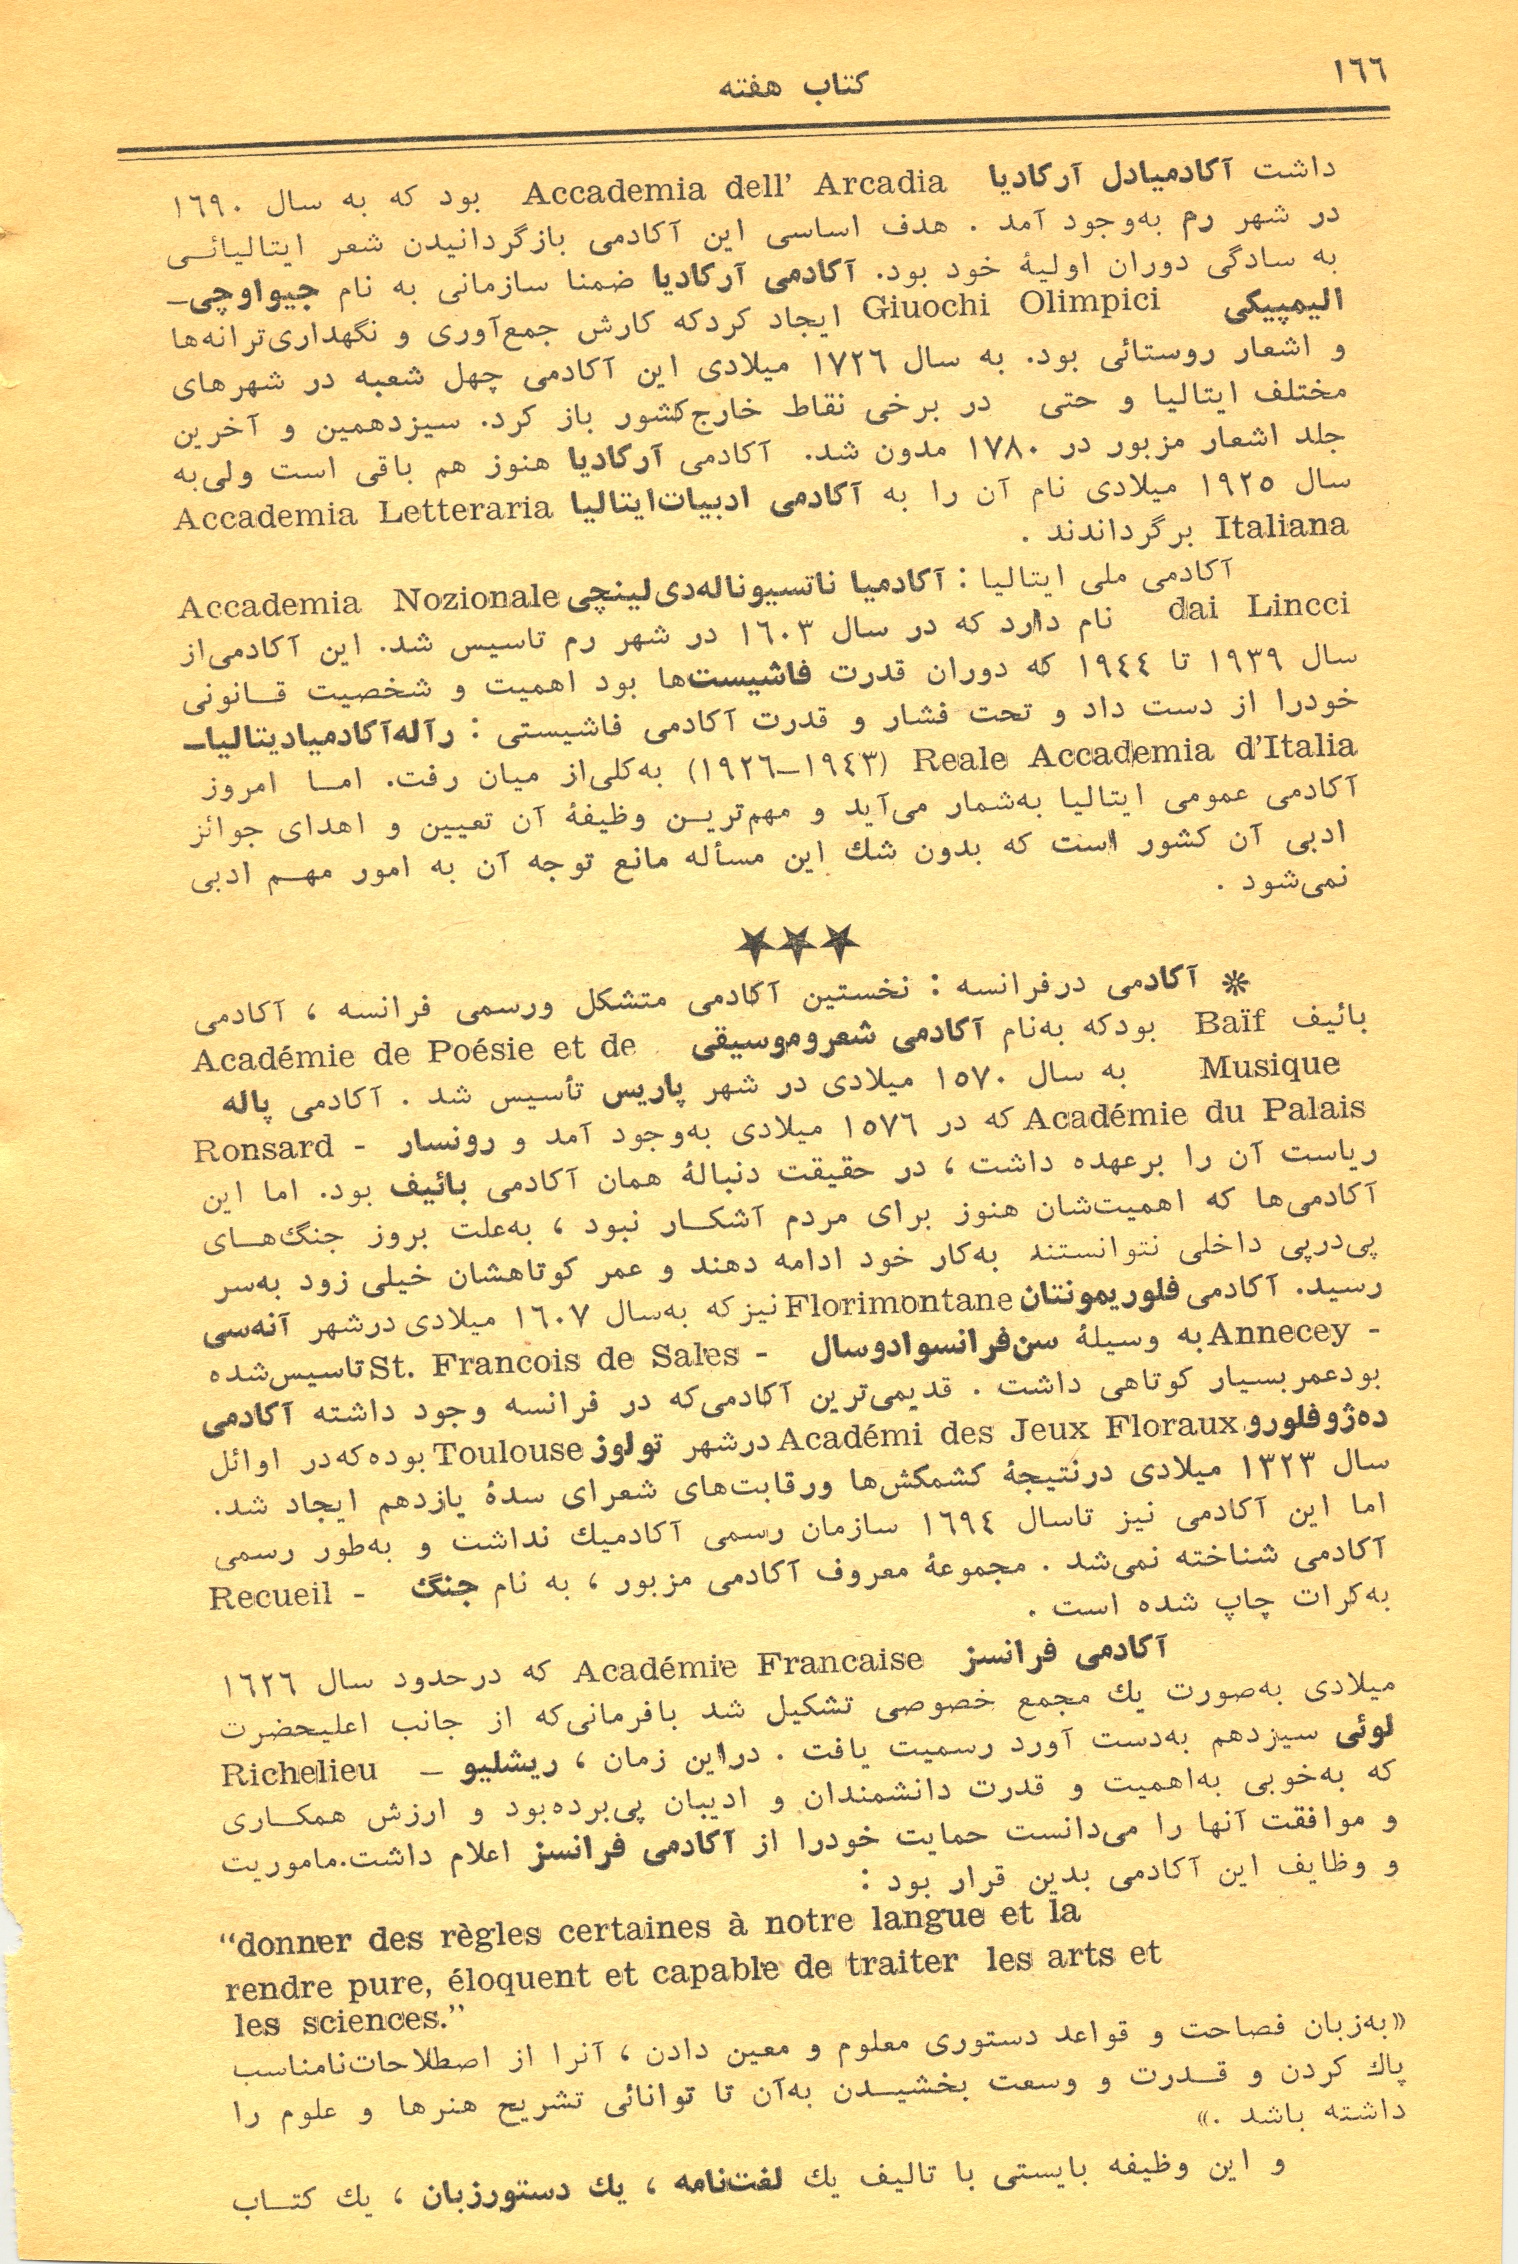 ۱٦٦
کتاب هفته
داشت آکادمیادل آرکادیا Accademia dell' Arcadia بود که به سال ۱٦۹۰
در شهر رم به‌وجود آمد . هدف اساسی این آکادمی بازگردانیدن شعر ایتالیائی
به سادگی دوران اولیهٔ خود بود. آکادمی آرکادیا ضمنا سازمانی به نام جیواوچی–
الیمپیکی Giuochi Olimpici ایجاد کردکه کارش جمع‌آوری و نگهداری‌ترانه‌ها
و اشعار روستائی بود. به سال ۱۷۲٦ میلادی این آکادمی چهل شعبه در شهرهای
مختلف ایتالیا و حتی در برخی نقاط خارج‌کشور باز کرد. سیزدهمین و آخرین
جلد اشعار مزبور در ۱۷۸۰ مدون شد. آکادمی آرکادیا هنوز هم باقی است ولی‌به
سال ۱۹۲۵ میلادی نام آن را به آکادمی ادبیات‌ایتالیا Accademia Letteraria
Italiana برگرداندند .
آکادمی ملی ایتالیا : آکادمیا ناتسیوناله‌دی‌لینچی Accademia Nozionale
dai Lincci نام دارد که در سال ۱٦۰۳ در شهر رم تاسیس شد. این آکادمی‌از
سال ۱۹۳۹ تا ۱۹٤٤ که دوران قدرت فاشیست‌ها بود اهمیت و شخصیت قانونی
خودرا از دست داد و تحت فشار و قدرت آکادمی فاشیستی : رآله‌آکادمیادیتالیا–
Reale Accademia d'Italia (۱۹۲٦–۱۹٤۳) به‌کلی‌از میان رفت. اما امروز
آکادمی عمومی ایتالیا به‌شمار می‌آید و مهم‌ترین وظیفهٔ آن تعیین و اهدای جوائز
ادبی آن کشور است که بدون شك این مسأله مانع توجه آن به امور مهم ادبی
نمی‌شود .
★★★
* آکادمی درفرانسه : نخستین آکادمی متشکل ورسمی فرانسه ، آکادمی
بائیف Baïf بودکه به‌نام آکادمی شعروموسیقی Académie de Poésie et de
Musique به سال ۱۵۷۰ میلادی در شهر پاریس تأسیس شد . آکادمی پاله
Académie du Palais که در ۱۵۷٦ میلادی به‌وجود آمد و رونسار - Ronsard
ریاست آن را برعهده داشت ، در حقیقت دنبالهٔ همان آکادمی بائیف بود. اما این
آکادمی‌ها که اهمیت‌شان هنوز برای مردم آشکار نبود ، به‌علت بروز جنگ‌های
پی‌درپی داخلی نتوانستند به‌کار خود ادامه دهند و عمر کوتاهشان خیلی زود به‌سر
رسید. آکادمی فلوریمونتان Florimontane نیزکه به‌سال ۱٦۰۷ میلادی درشهر آنه‌سی
- Annecey به وسیلهٔ سن‌فرانسوادوسال - St. Francois de Sales تاسیس‌شده
بودعمربسیار کوتاهی داشت . قدیمی‌ترین آکادمی‌که در فرانسه وجود داشته آکادمی
ده‌ژوفلورو Académi des Jeux Floraux درشهر تولوز Toulouse بوده‌که‌در اوائل
سال ۱۳۲۳ میلادی درنتیجهٔ کشمکش‌ها ورقابت‌های شعرای سدهٔ یازدهم ایجاد شد.
اما این آکادمی نیز تاسال ۱٦۹٤ سازمان رسمی آکادمیك نداشت و به‌طور رسمی
آکادمی شناخته نمی‌شد . مجموعهٔ معروف آکادمی مزبور ، به نام جنگ - Recueil
به‌کرات چاپ شده است .
آکادمی فرانسز Académie Francaise که درحدود سال ۱٦۲٦
میلادی به‌صورت یك مجمع خصوصی تشکیل شد بافرمانی‌که از جانب اعلیحضرت
لوئی سیزدهم به‌دست آورد رسمیت یافت . دراین زمان ، ریشلیو – Richelieu
که به‌خوبی به‌اهمیت و قدرت دانشمندان و ادیبان پی‌برده‌بود و ارزش همکاری
و موافقت آنها را می‌دانست حمایت خودرا از آکادمی فرانسز اعلام داشت.ماموریت
و وظایف این آکادمی بدین قرار بود :
“donner des règles certaines à notre langue et la
rendre pure, éloquent et capable de traiter les arts et
les sciences.”
«به‌زبان فصاحت و قواعد دستوری معلوم و معین دادن ، آنرا از اصطلاحات‌نامناسب
پاك کردن و قدرت و وسعت بخشیدن به‌آن تا توانائی تشریح هنرها و علوم را
داشته باشد .»
و این وظیفه بایستی با تالیف یك لغت‌نامه ، یك دستورزبان ، یك کتاب